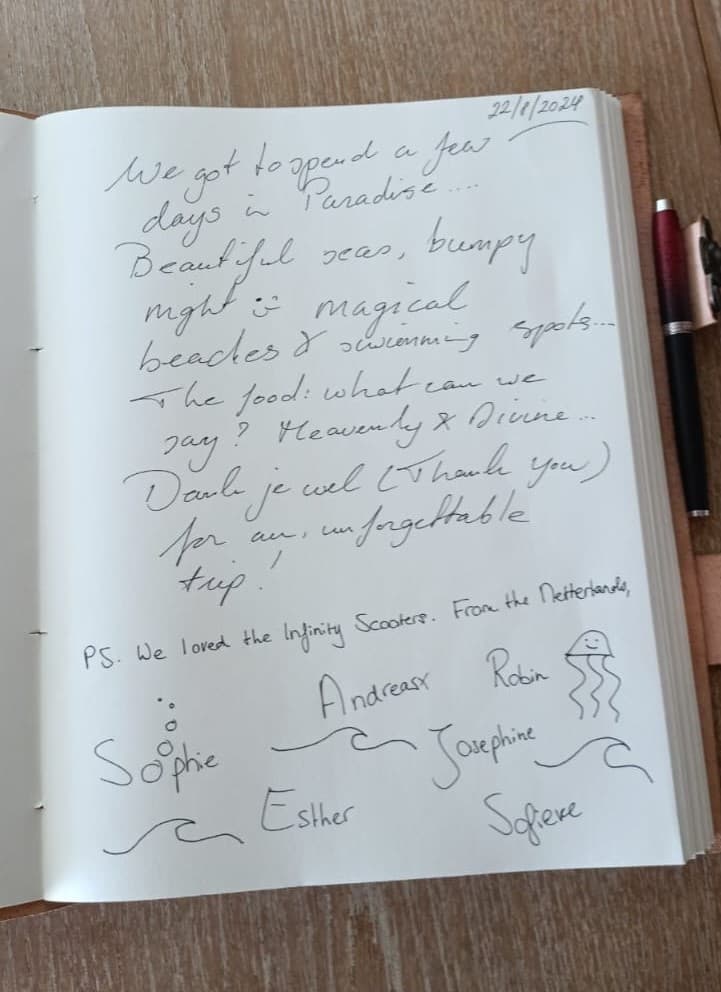 22/8/2024
We got to spend a few
days in Paradise....
Beautiful seas, bumpy
night :-) magical
beaches & swimming spots...
The food: what can we
say? Heavenly & Divine...
Dank je wel (Thank you)
for an, unforgettable
trip!
PS. We loved the Infinity Scooters. From the Netherlands,
Andreas Robin
Sophie Josephine
Esther